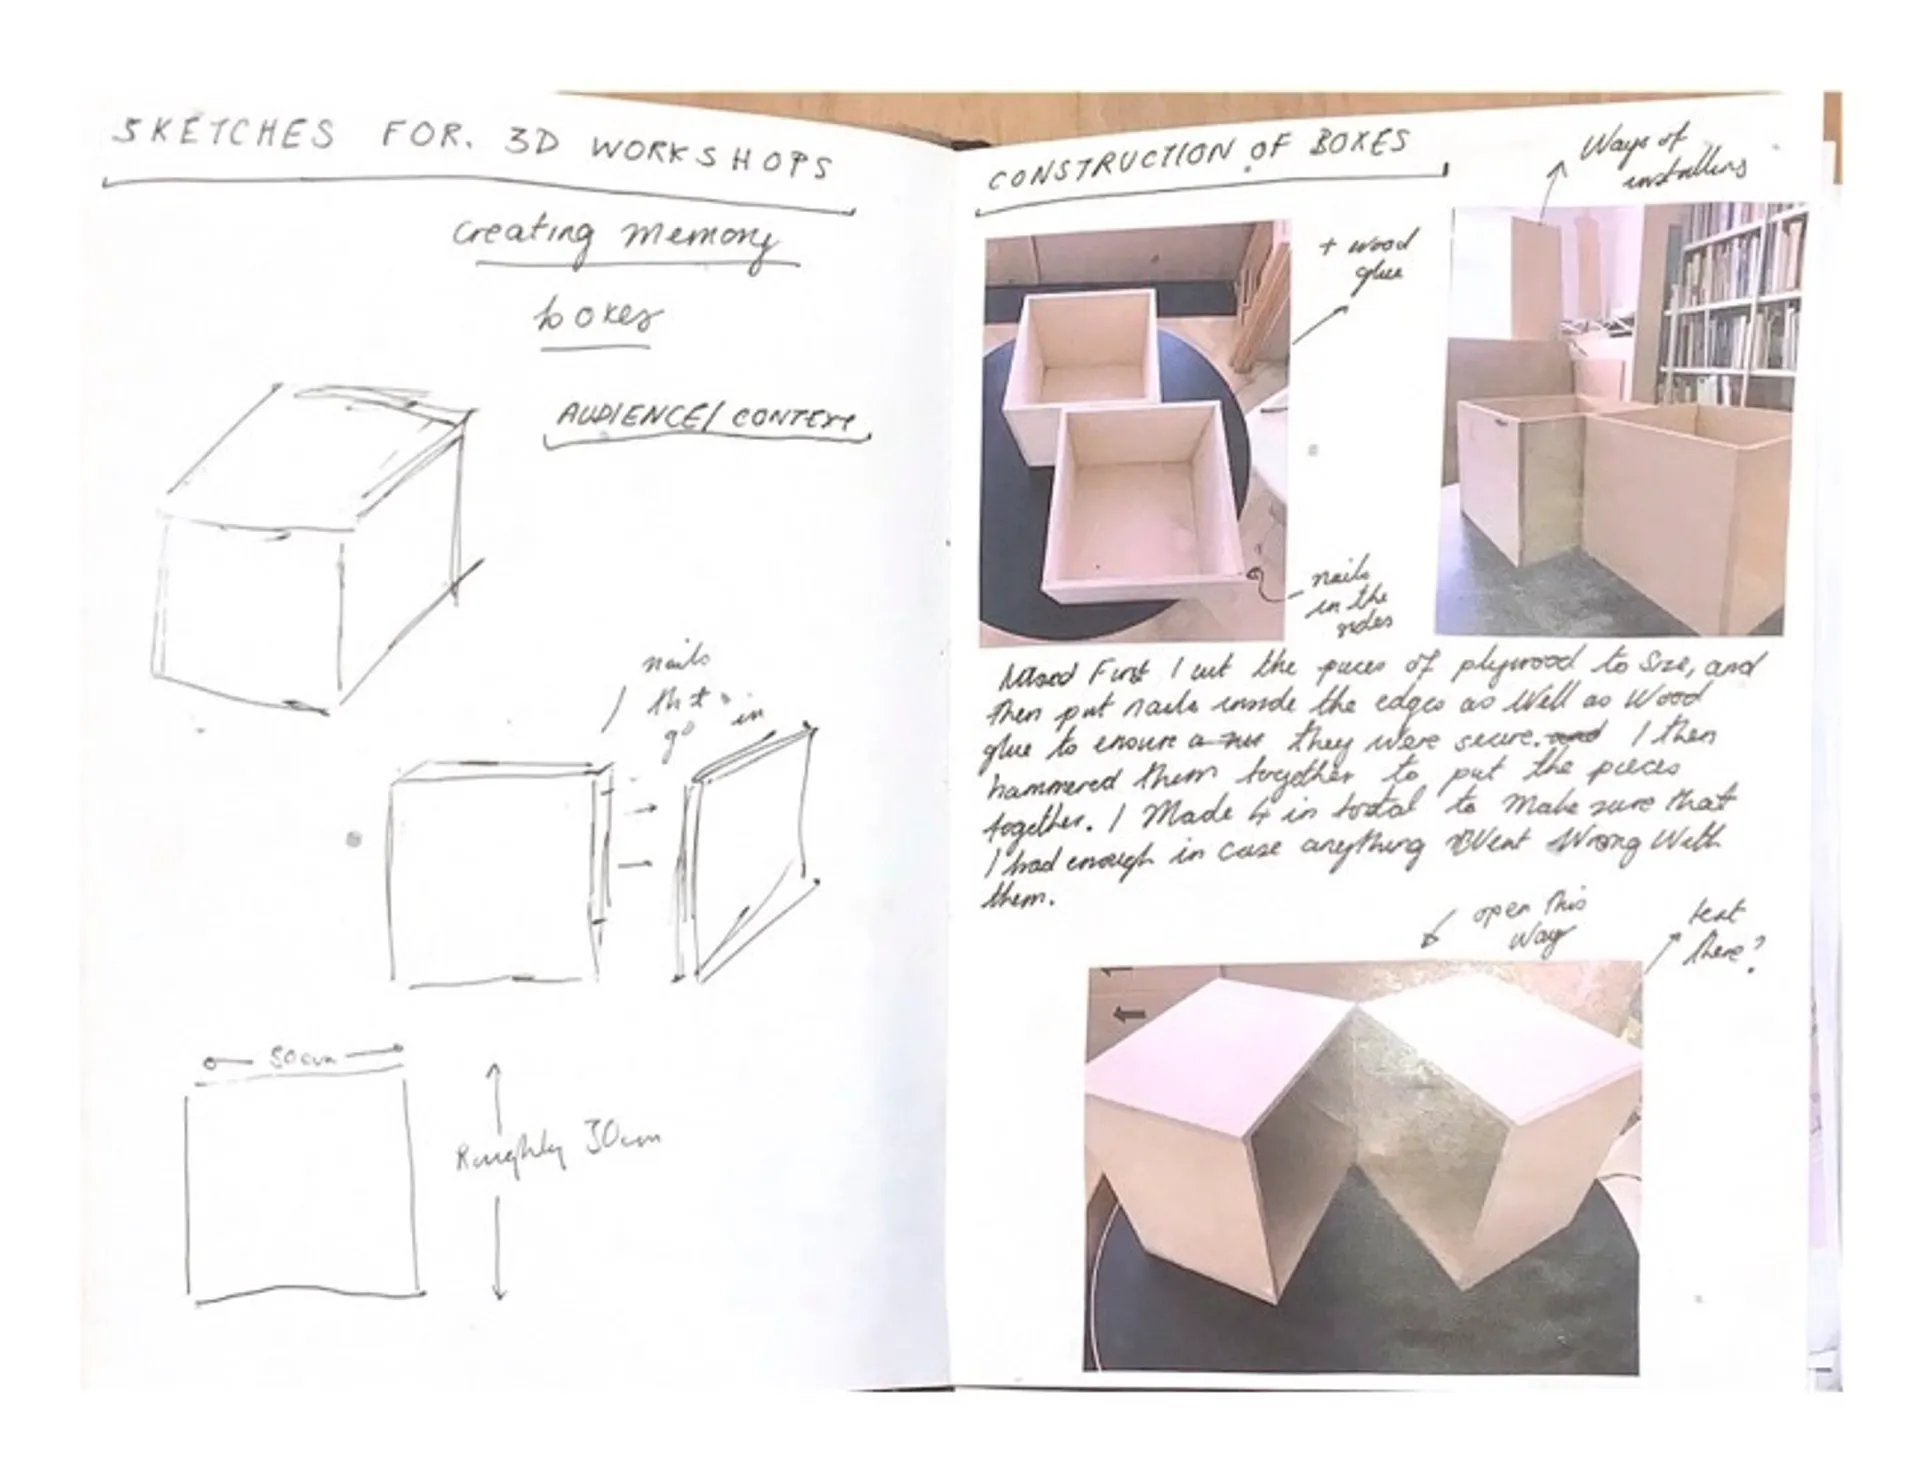 SKETCHES FOR. 3D WORKSHOPS
creating memory
boxes
AUDIENCE/CONTEXT
nails
that
go in
30cm
Roughly 30cm
CONSTRUCTION OF BOXES
Ways of
installing
+ wood
glue
nails
in the
sides
First I cut the pieces of plywood to size, and
then put nails inside the edges as well as wood
glue to ensure they were secure. and I then
hammered them together to put the pieces
together. I made 4 in total to make sure that
I had enough in case anything went wrong with
them.
open this
way
text
here?